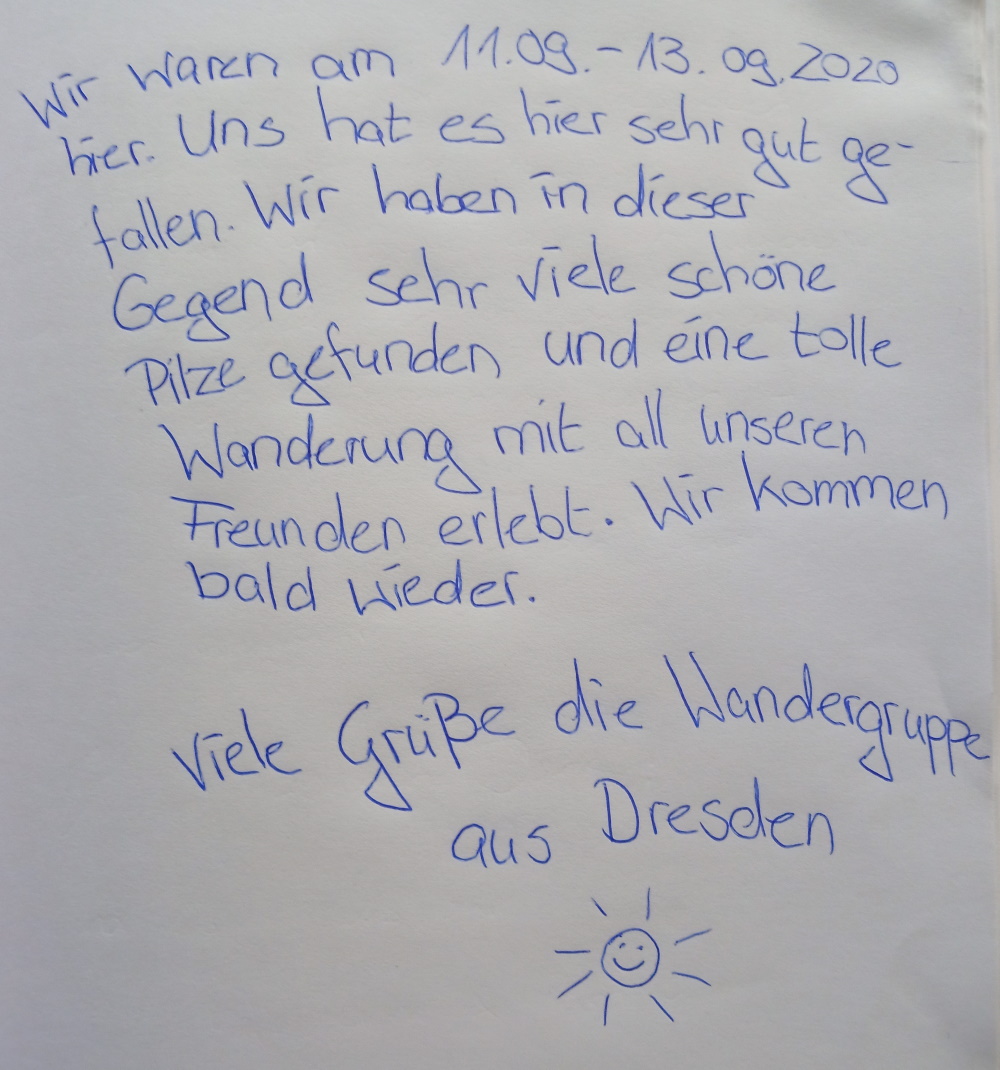 Wir waren am 11.09.-13.09.2020
hier. Uns hat es hier sehr gut ge-
fallen. Wir haben in dieser
Gegend sehr viele schöne
Pilze gefunden und eine tolle
Wanderung mit all unseren
Freunden erlebt. Wir kommen
bald wieder.
Viele Grüße die Wandergruppe
aus Dresden